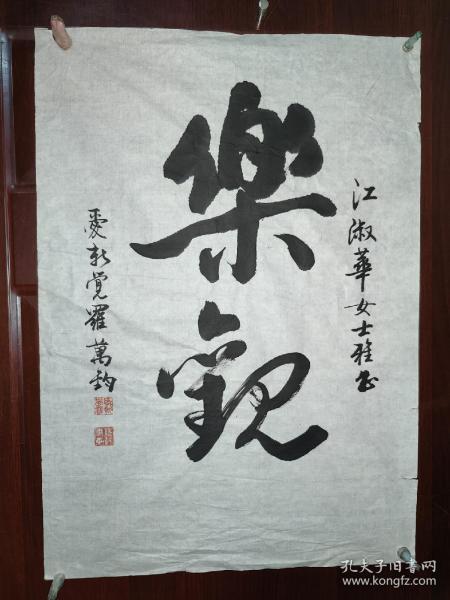 江淑華女士雅正
樂觀
愛新覺羅萬鈞
孔夫子旧书网
www.kongfz.com